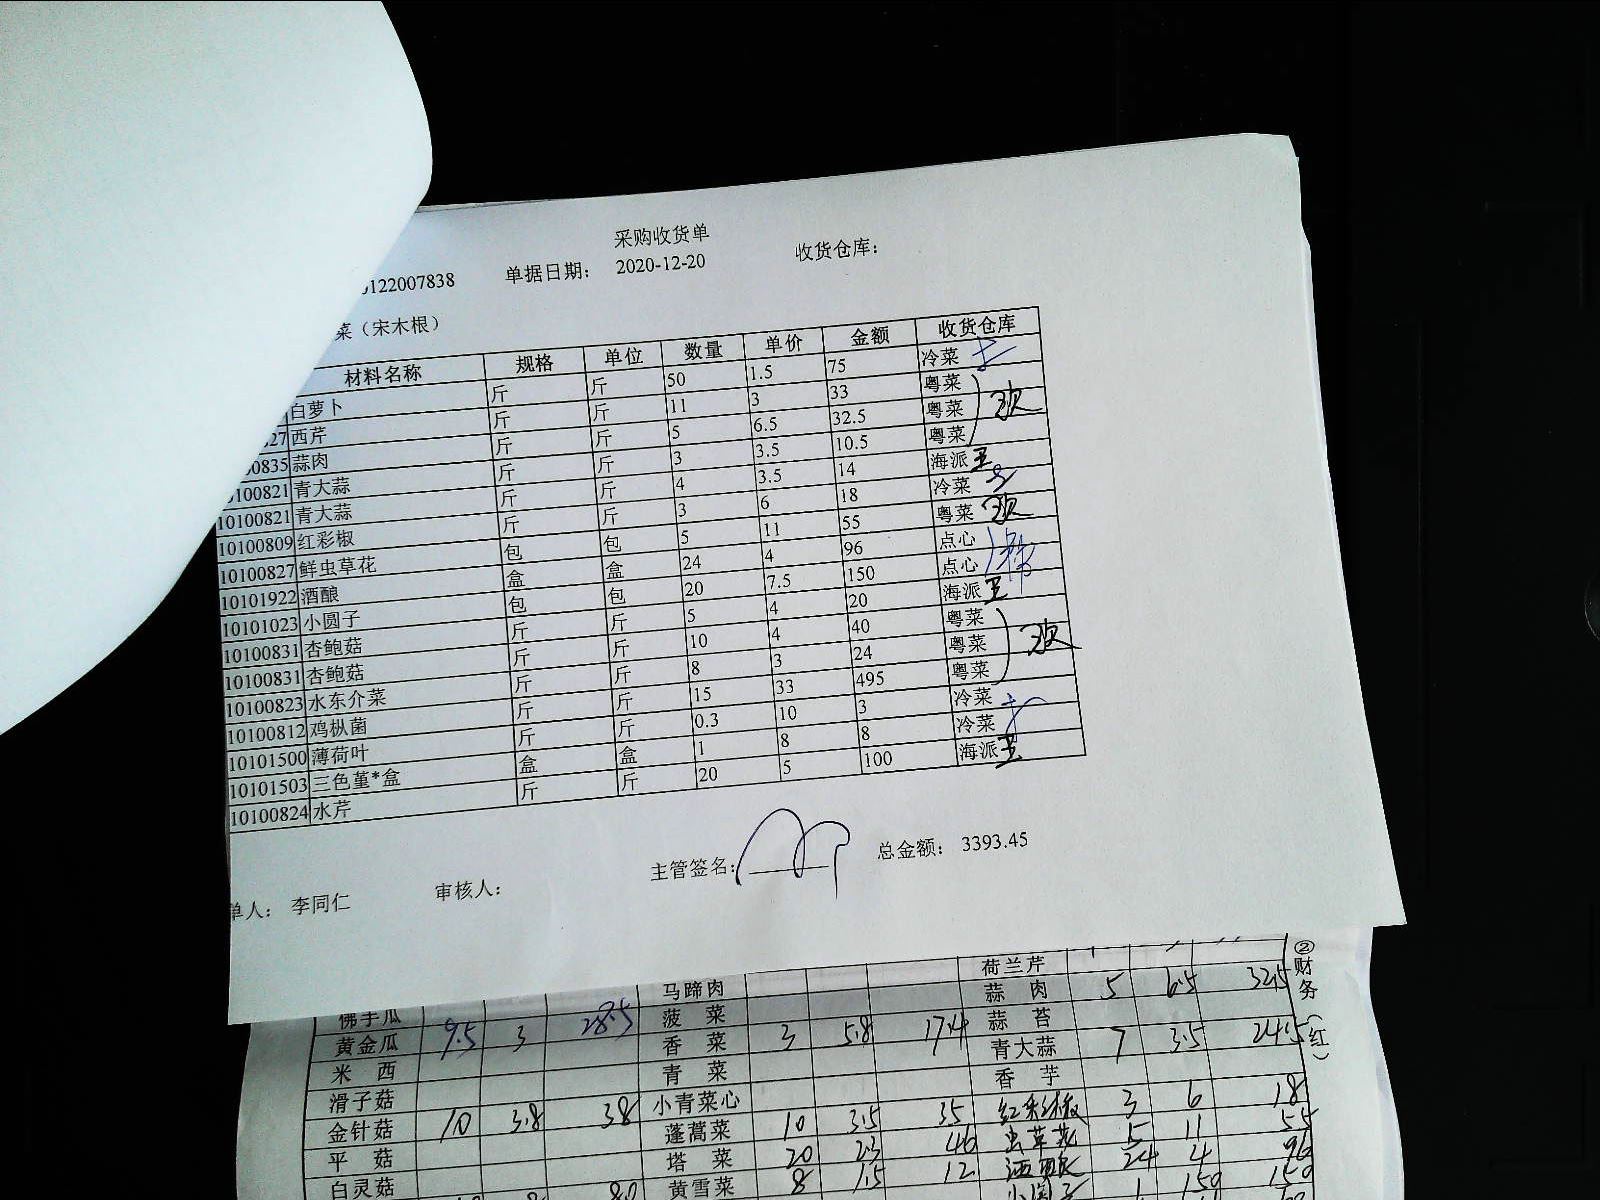 采购收货单
0122007838 单据日期： 2020-12-20 收货仓库：
菜（宋木根）
材料名称 规格 单位 数量 单价 金额 收货仓库
白萝卜 斤 斤 50 1.5 75 冷菜
27 西芹 斤 斤 11 3 33 粤菜
00835 蒜肉 斤 斤 5 6.5 32.5 粤菜
0100821 青大蒜 斤 斤 3 3.5 10.5 粤菜
10100821 青大蒜 斤 斤 4 3.5 14 海派 王
10100809 红彩椒 斤 斤 3 6 18 冷菜
10100827 鲜虫草花 包 包 5 11 55 粤菜
10101922 酒酿 盒 盒 24 4 96 点心
10101023 小圆子 包 包 20 7.5 150 点心
10100831 杏鲍菇 斤 斤 5 4 20 海派 王
10100831 杏鲍菇 斤 斤 10 4 40 粤菜
10100823 水东介菜 斤 斤 8 3 24 粤菜
10100812 鸡枞菌 斤 斤 15 33 495 粤菜
10101500 薄荷叶 斤 斤 0.3 10 3 冷菜
10101503 三色堇*盒 盒 盒 1 8 8 冷菜
10100824 水芹 斤 斤 20 5 100 海派 王
单人： 李同仁 审核人： 主管签名： 总金额： 3393.45
荷兰芹
马蹄肉 蒜肉 5 6.5 32.5
佛手瓜 菠菜 蒜苔
黄金瓜 9.5 3 28.5 香菜 3 5.8 17.4 青大蒜 7 3.5 24.5
米西 青菜 香芋
滑子菇 小青菜心 红彩椒 3 6 18
金针菇 10 3.8 38 蓬蒿菜 10 3.5 35 虫草花 5 11 55
平菇 塔菜 20 2.3 46 酒酿 24 4 96
白灵菇 黄雪菜 8 1.5 12 小圆子 1 150 150
②财务（红）